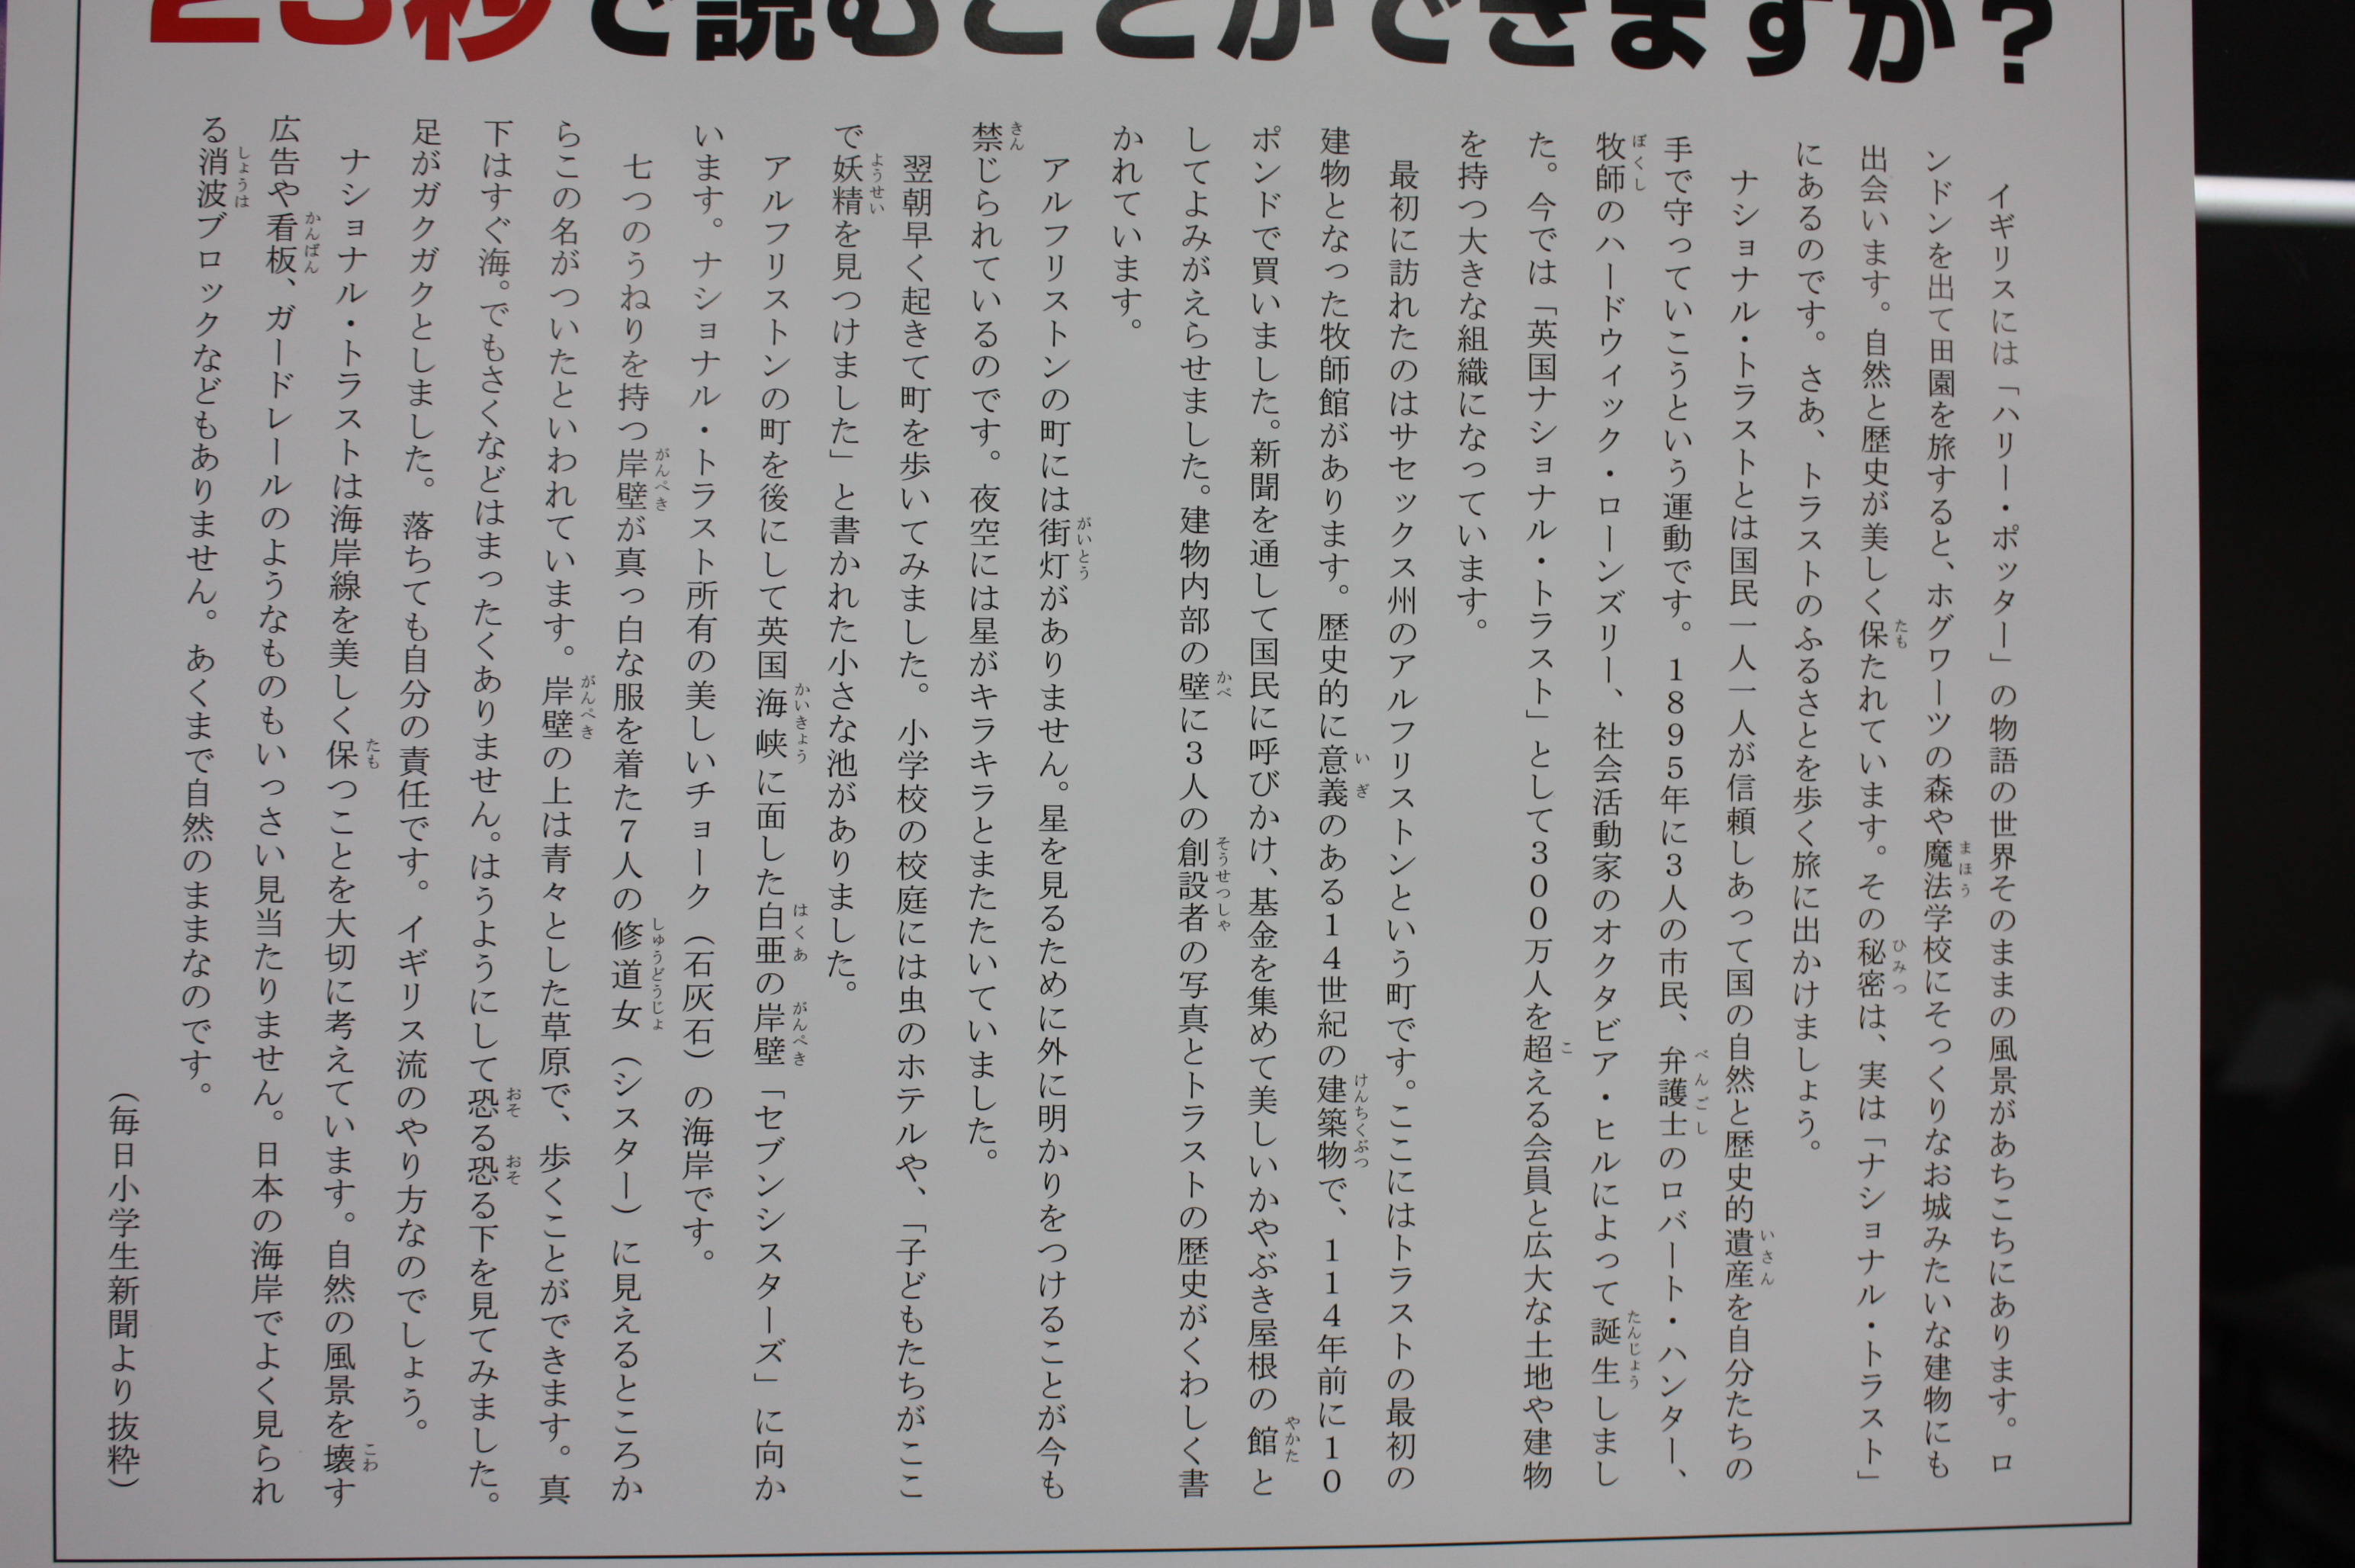 25秒で読むことができますか?
イギリスには「ハリー・ポッター」の物語の世界そのままの風景があちこちにあります。ロ
ンドンを出て田園を旅すると、ホグワーツの森や魔法学校にそっくりなお城みたいな建物にも
出会います。自然と歴史が美しく保たれています。その秘密は、実は「ナショナル・トラスト」
にあるのです。さあ、トラストのふるさとを歩く旅に出かけましょう。
ナショナル・トラストとは国民一人一人が信頼しあって国の自然と歴史的遺産を自分たちの
手で守っていこうという運動です。1895年に3人の市民、弁護士のロバート・ハンター、
牧師のハードウィック・ローンズリー、社会活動家のオクタビア・ヒルによって誕生しまし
た。今では「英国ナショナル・トラスト」として300万人を超える会員と広大な土地や建物
を持つ大きな組織になっています。
最初に訪れたのはサセックス州のアルフリストンという町です。ここにはトラストの最初の
建物となった牧師館があります。歴史的に意義のある14世紀の建築物で、114年前に10
ポンドで買いました。新聞を通して国民に呼びかけ、基金を集めて美しいかやぶき屋根の館と
してよみがえらせました。建物内部の壁に3人の創設者の写真とトラストの歴史がくわしく書
かれています。
アルフリストンの町には街灯がありません。星を見るために外に明かりをつけることが今も
禁じられているのです。夜空には星がキラキラとまたたいていました。
翌朝早く起きて町を歩いてみました。小学校の校庭には虫のホテルや、「子どもたちがここ
で妖精を見つけました」と書かれた小さな池がありました。
アルフリストンの町を後にして英国海峡に面した白亜の岸壁「セブンシスターズ」に向か
います。ナショナル・トラスト所有の美しいチョーク（石灰石）の海岸です。
七つのうねりを持つ岸壁が真っ白な服を着た7人の修道女（シスター）に見えるところか
らこの名がついたといわれています。岸壁の上は青々とした草原で、歩くことができます。真
下はすぐ海。でもさくなどはまったくありません。はうようにして恐る恐る下を見てみました。
足がガクガクとしました。落ちても自分の責任です。イギリス流のやり方なのでしょう。
ナショナル・トラストは海岸線を美しく保つことを大切に考えています。自然の風景を壊す
広告や看板、ガードレールのようなものもいっさい見当たりません。日本の海岸でよく見られ
る消波ブロックなどもありません。あくまで自然のままなのです。
（毎日小学生新聞より抜粋）